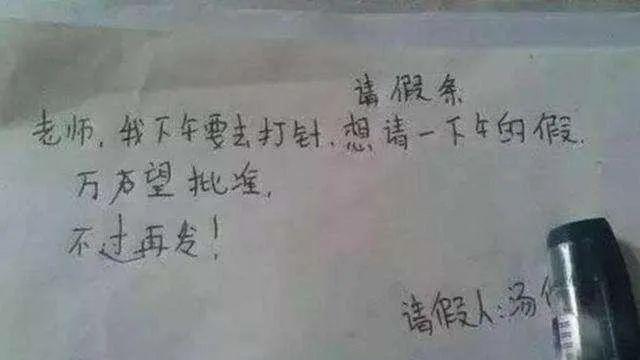 请假条
老师，我下午要去打针，想请一下午的假，
万方望批准，
不过再发！
请假人：汤